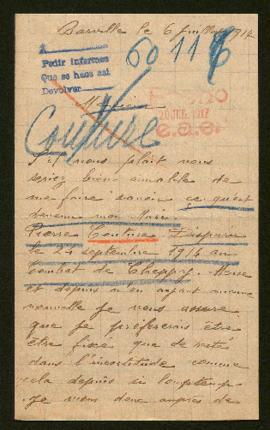 Barville le 6 juillet 1917
A
Pedir informes
Que se hace así
Devolver
60116
Couture
20 JUL. 1917
S'il vous plait vous
seriez bien aimable de
me faire savoir ce qu'est
devenu mon
Pierre Couture Disparu
le 24 septembre 1914 au
combat de Cheppy. Meuse
et depuis n'en ayant aucune
nouvelle je vous assure
que je préfèrerais être
être fixé que de resté
dans l'incertitude comme
cela depuis si longtemps
je viens donc auprès de